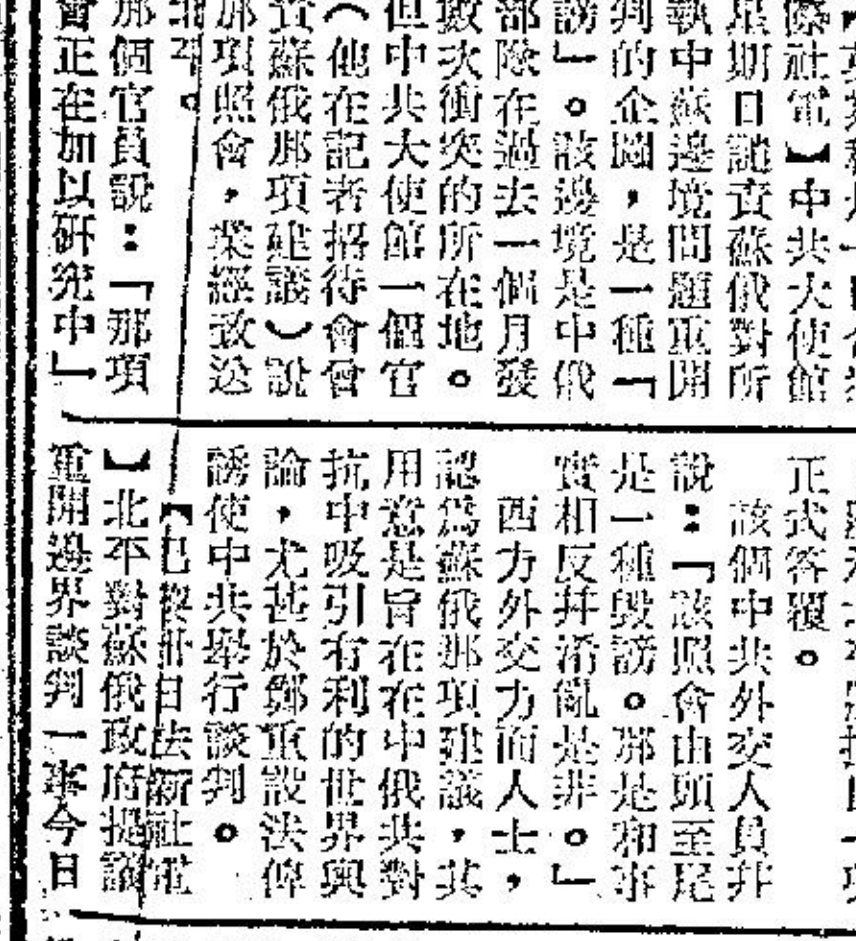 際社電】中共大使館
星期日譴責蘇俄對所
執中蘇邊境問題重開
判的企圖，是一種「
謗」。該邊境是中俄
部隊在過去一個月發
數次衝突的所在地。
但中共大使館一個官
（他在記者招待會曾
責蘇俄那項建議）說
那項照會，業經致送
北平。
那個官員說：「那項
會正在加以研究中」
正式答覆。
該個中共外交人員幷
說：「該照會由頭至尾
是一種毀謗。那是和事
實相反幷淆亂是非。」
西方外交方面人士，
認爲蘇俄那項建議，其
用意是旨在在中俄共對
抗中吸引有利的世界輿
論，尤甚於鄭重設法俾
誘使中共舉行談判。
【巴黎卅日法新社電
】北平對蘇俄政府提議
重開邊界談判一事今日